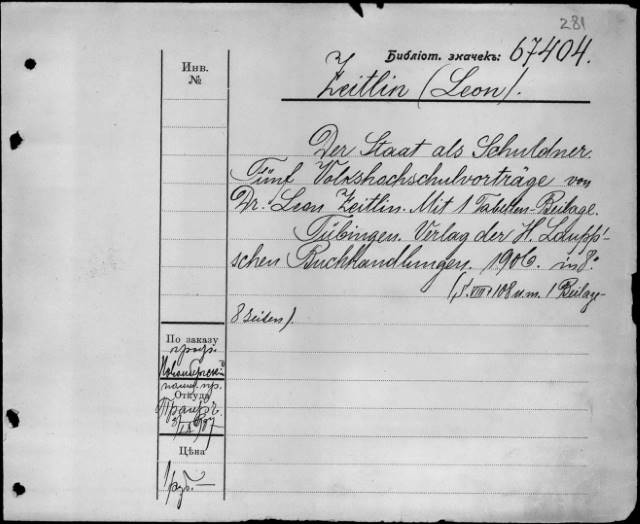 281
Библіот. значекъ: 67404.
Инв.
№
Zeitlin (Leon).
Der Staat als Schuldner.
Fünf Volkshochschulvorträge von
Dr. Leon Zeitlin. Mit 1 Tabellen-Beilage.
Tübingen. Verlag der H. Laupp'-
schen Buchhandlungen. 1906. in 8.°
VIII 108 u. m. 1 Beilage-
8 Seiten).
По заказу
Откуда
Цѣна
1 руб. —